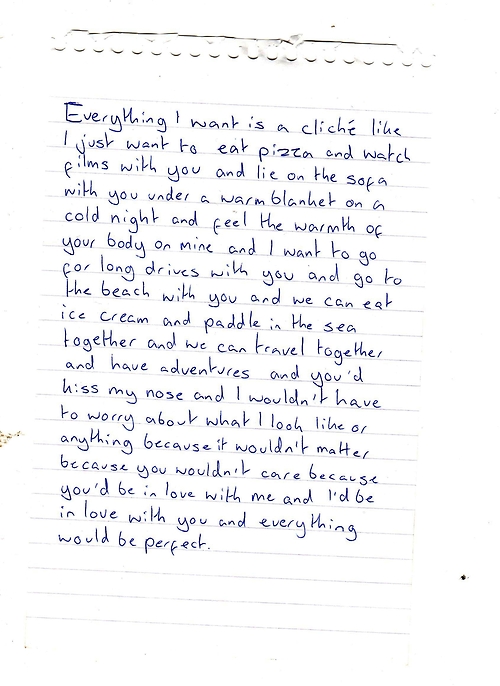 Everything I want is a cliché like
I just want to eat pizza and watch
films with you and lie on the sofa
with you under a warm blanket on a
cold night and feel the warmth of
your body on mine and I want to go
for long drives with you and go to
the beach with you and we can eat
ice cream and paddle in the sea
together and we can travel together
and have adventures and you'd
kiss my nose and I wouldn't have
to worry about what I look like or
anything because it wouldn't matter
because you wouldn't care because
you'd be in love with me and I'd be
in love with you and everything
would be perfect.